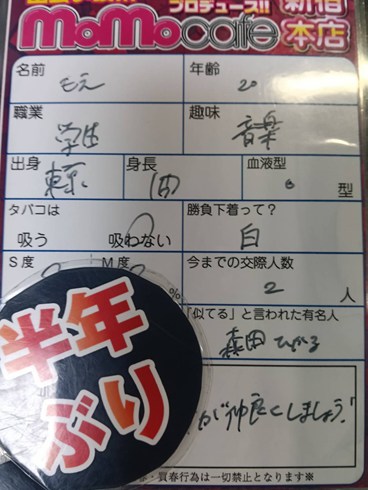 プロデュース!! 新宿
MoMo cafe 本店
名前 もえ 年齢 20
職業 学生 趣味 音楽
出身 東京 身長 血液型 型
タバコは 勝負下着って?
吸う 吸わない 白
S度 M度 今までの交際人数
% 2 人
「似てる」と言われた有名人
森田ひかる
半年
ぶり
が仲良くしましょう!
・買春行為は一切禁止となります※